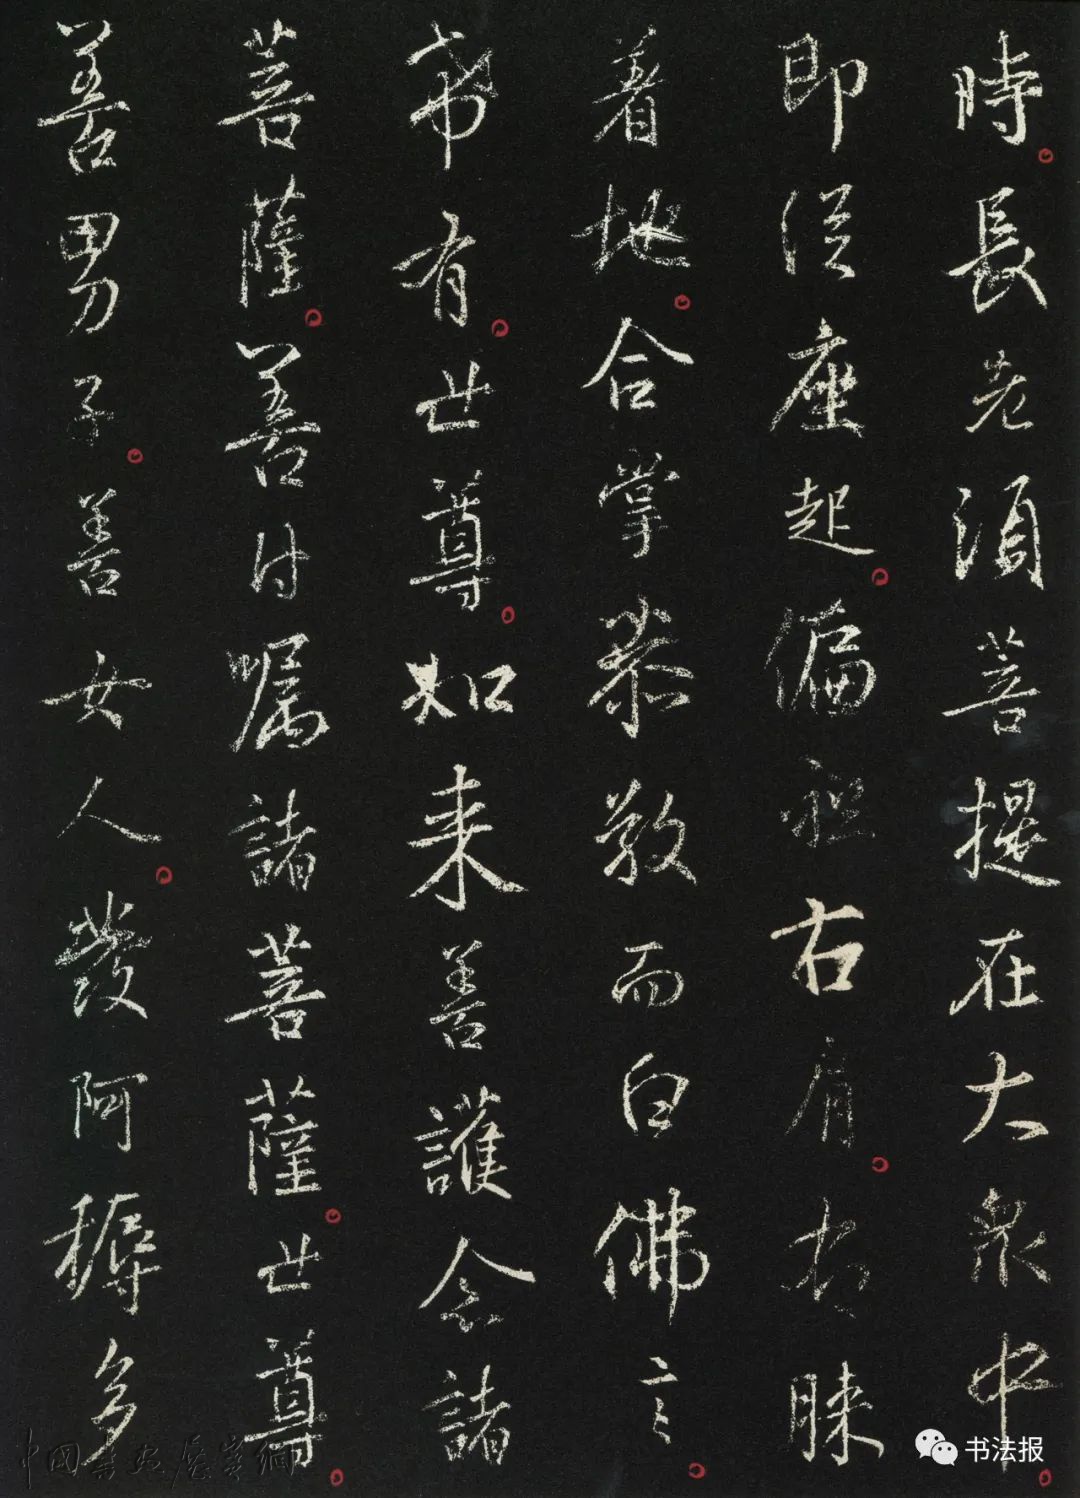 時。長老須菩提在大衆中。
即從座起。偏袒右肩。右膝
着地。合掌恭敬而白佛言。
希有。世尊。如来善護念諸
菩薩。善付嘱諸菩薩。世尊。
善男子。善女人。發阿耨多
书法报